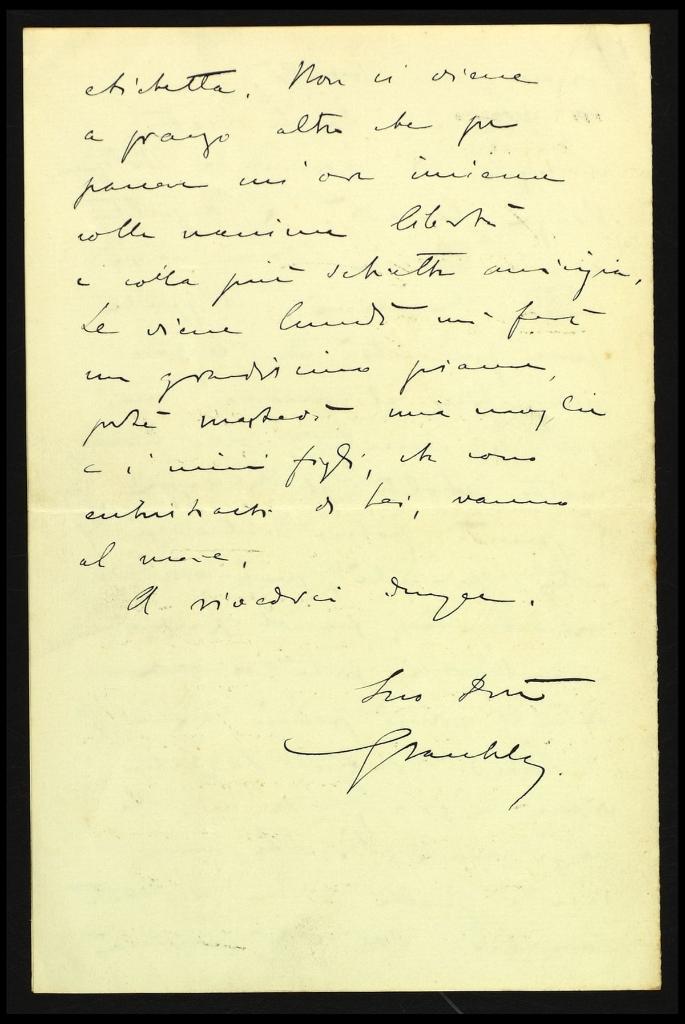 etichetta. Non si viene
a pranzo altro che per
passare un'ora insieme
colla massima libertà
e colla più schietta amicizia.
Se viene lunedì mi farà
un grandissimo piacere,
perchè martedì mia moglie
e i miei figli, che sono
entusiasti di Lei, vanno
al mare.
A rivederci dunque.
Suo